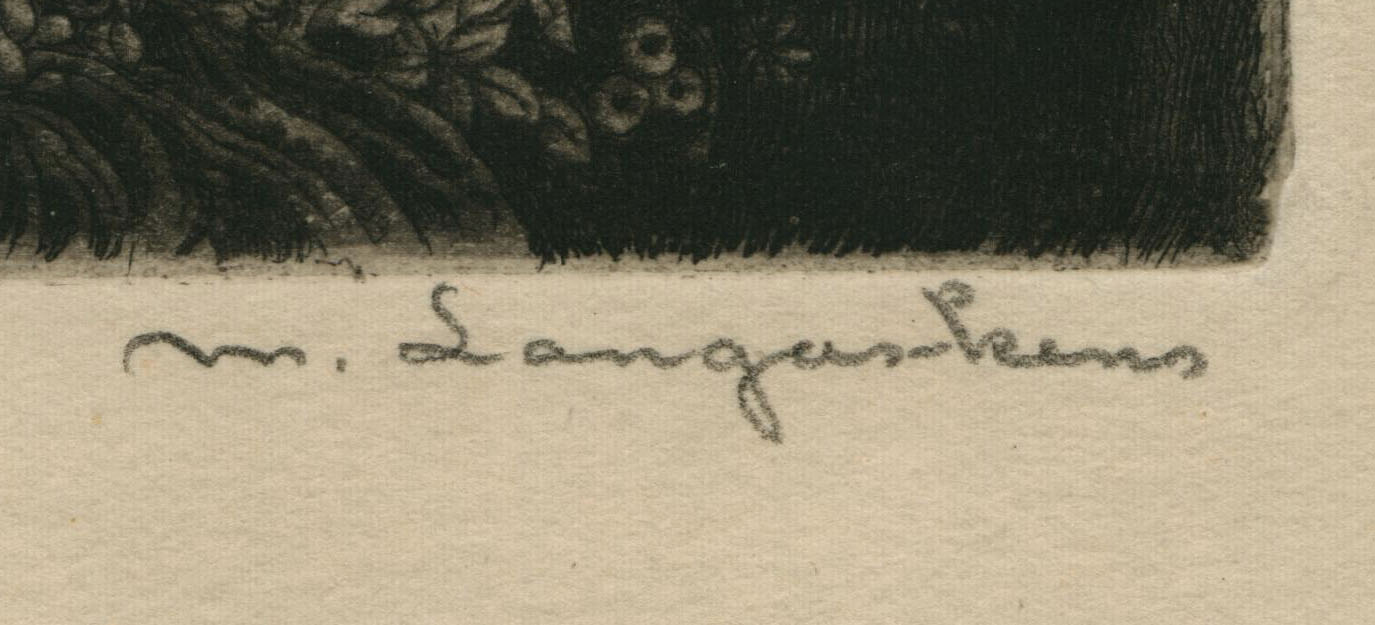 M. Langaskens